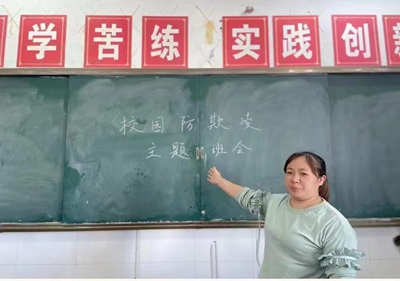 学苦练 实践创
校园防欺凌
主题班会